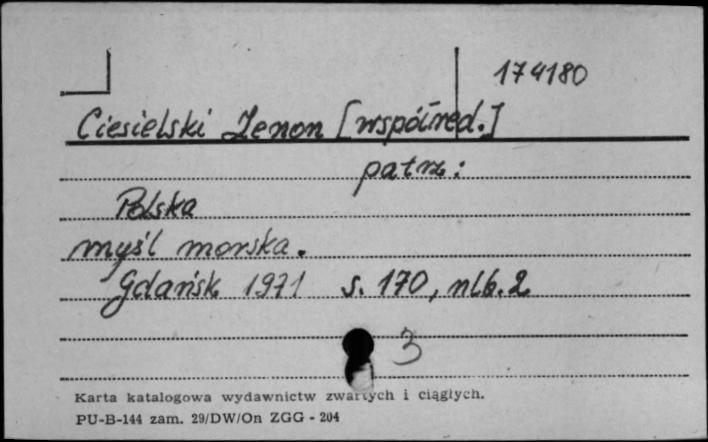 174180
Ciesielski Zenon [współred.]
patrz:
Polska
myśl morska.
Gdańsk 1971 s. 170, nlb. 2
3
Karta katalogowa wydawnictw zwartych i ciągłych.
PU-B-144 zam. 29/DW/On ZGG - 204